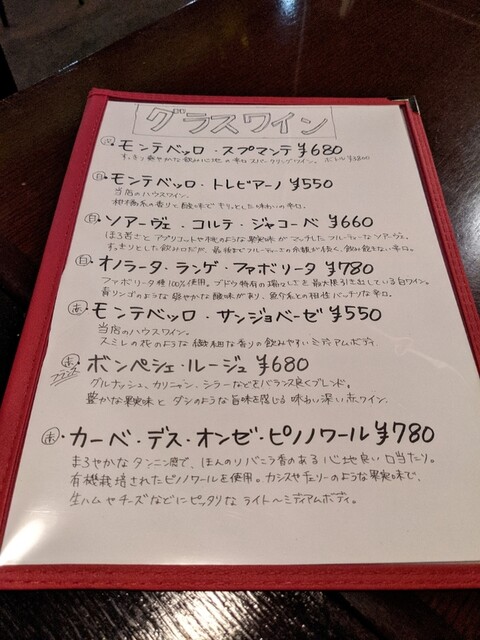 グラスワイン
泡・モンテベッロ・スプマンテ ¥680
すっきり爽やかな飲み心地の辛口スパークリングワイン。ボトル¥3800
白・モンテベッロ・トレビアーノ ¥550
当店のハウスワイン。
柑橘系の香りと酸味でキリッとした味わいの辛口。
白・ソアーヴェ・コルテ・ジャコーベ ¥660
ほろ苦さとアプリコットや桃のような果実味がマッチしたフルーティーなソアーヴェ。
すっきりとした飲み口だが、最後までフルーティーさの余韻が続く、飲み飽きない辛口。
白・オノラータ・ランゲ・ファボリータ ¥780
ファボリータ種100%使用。ブドウ特有の瑞々しさを最大限引き出している白ワイン。
青リンゴのような穏やかな酸味があり、魚介系との相性バッチリな辛口。
赤・モンテベッロ・サンジョベーゼ ¥550
当店のハウスワイン。
スミレの花のような繊細な香りの飲みやすいミディアムボディ。
赤・ボンペシェ・ルージュ ¥680
フランス
グルナッシュ、カリニャン、シラーなどをバランス良くブレンド。
豊かな果実味とダシのような旨味を感じる味わい深い赤ワイン。
赤・カーベ・デス・オンゼ・ピノノワール ¥780
まろやかなタンニン感で、ほんのりバニラ香のある心地良い口当たり。
有機栽培されたピノノワールを使用。カシスやチェリーのような果実味で、
生ハムやチーズなどにピッタリなライト〜ミディアムボディ。